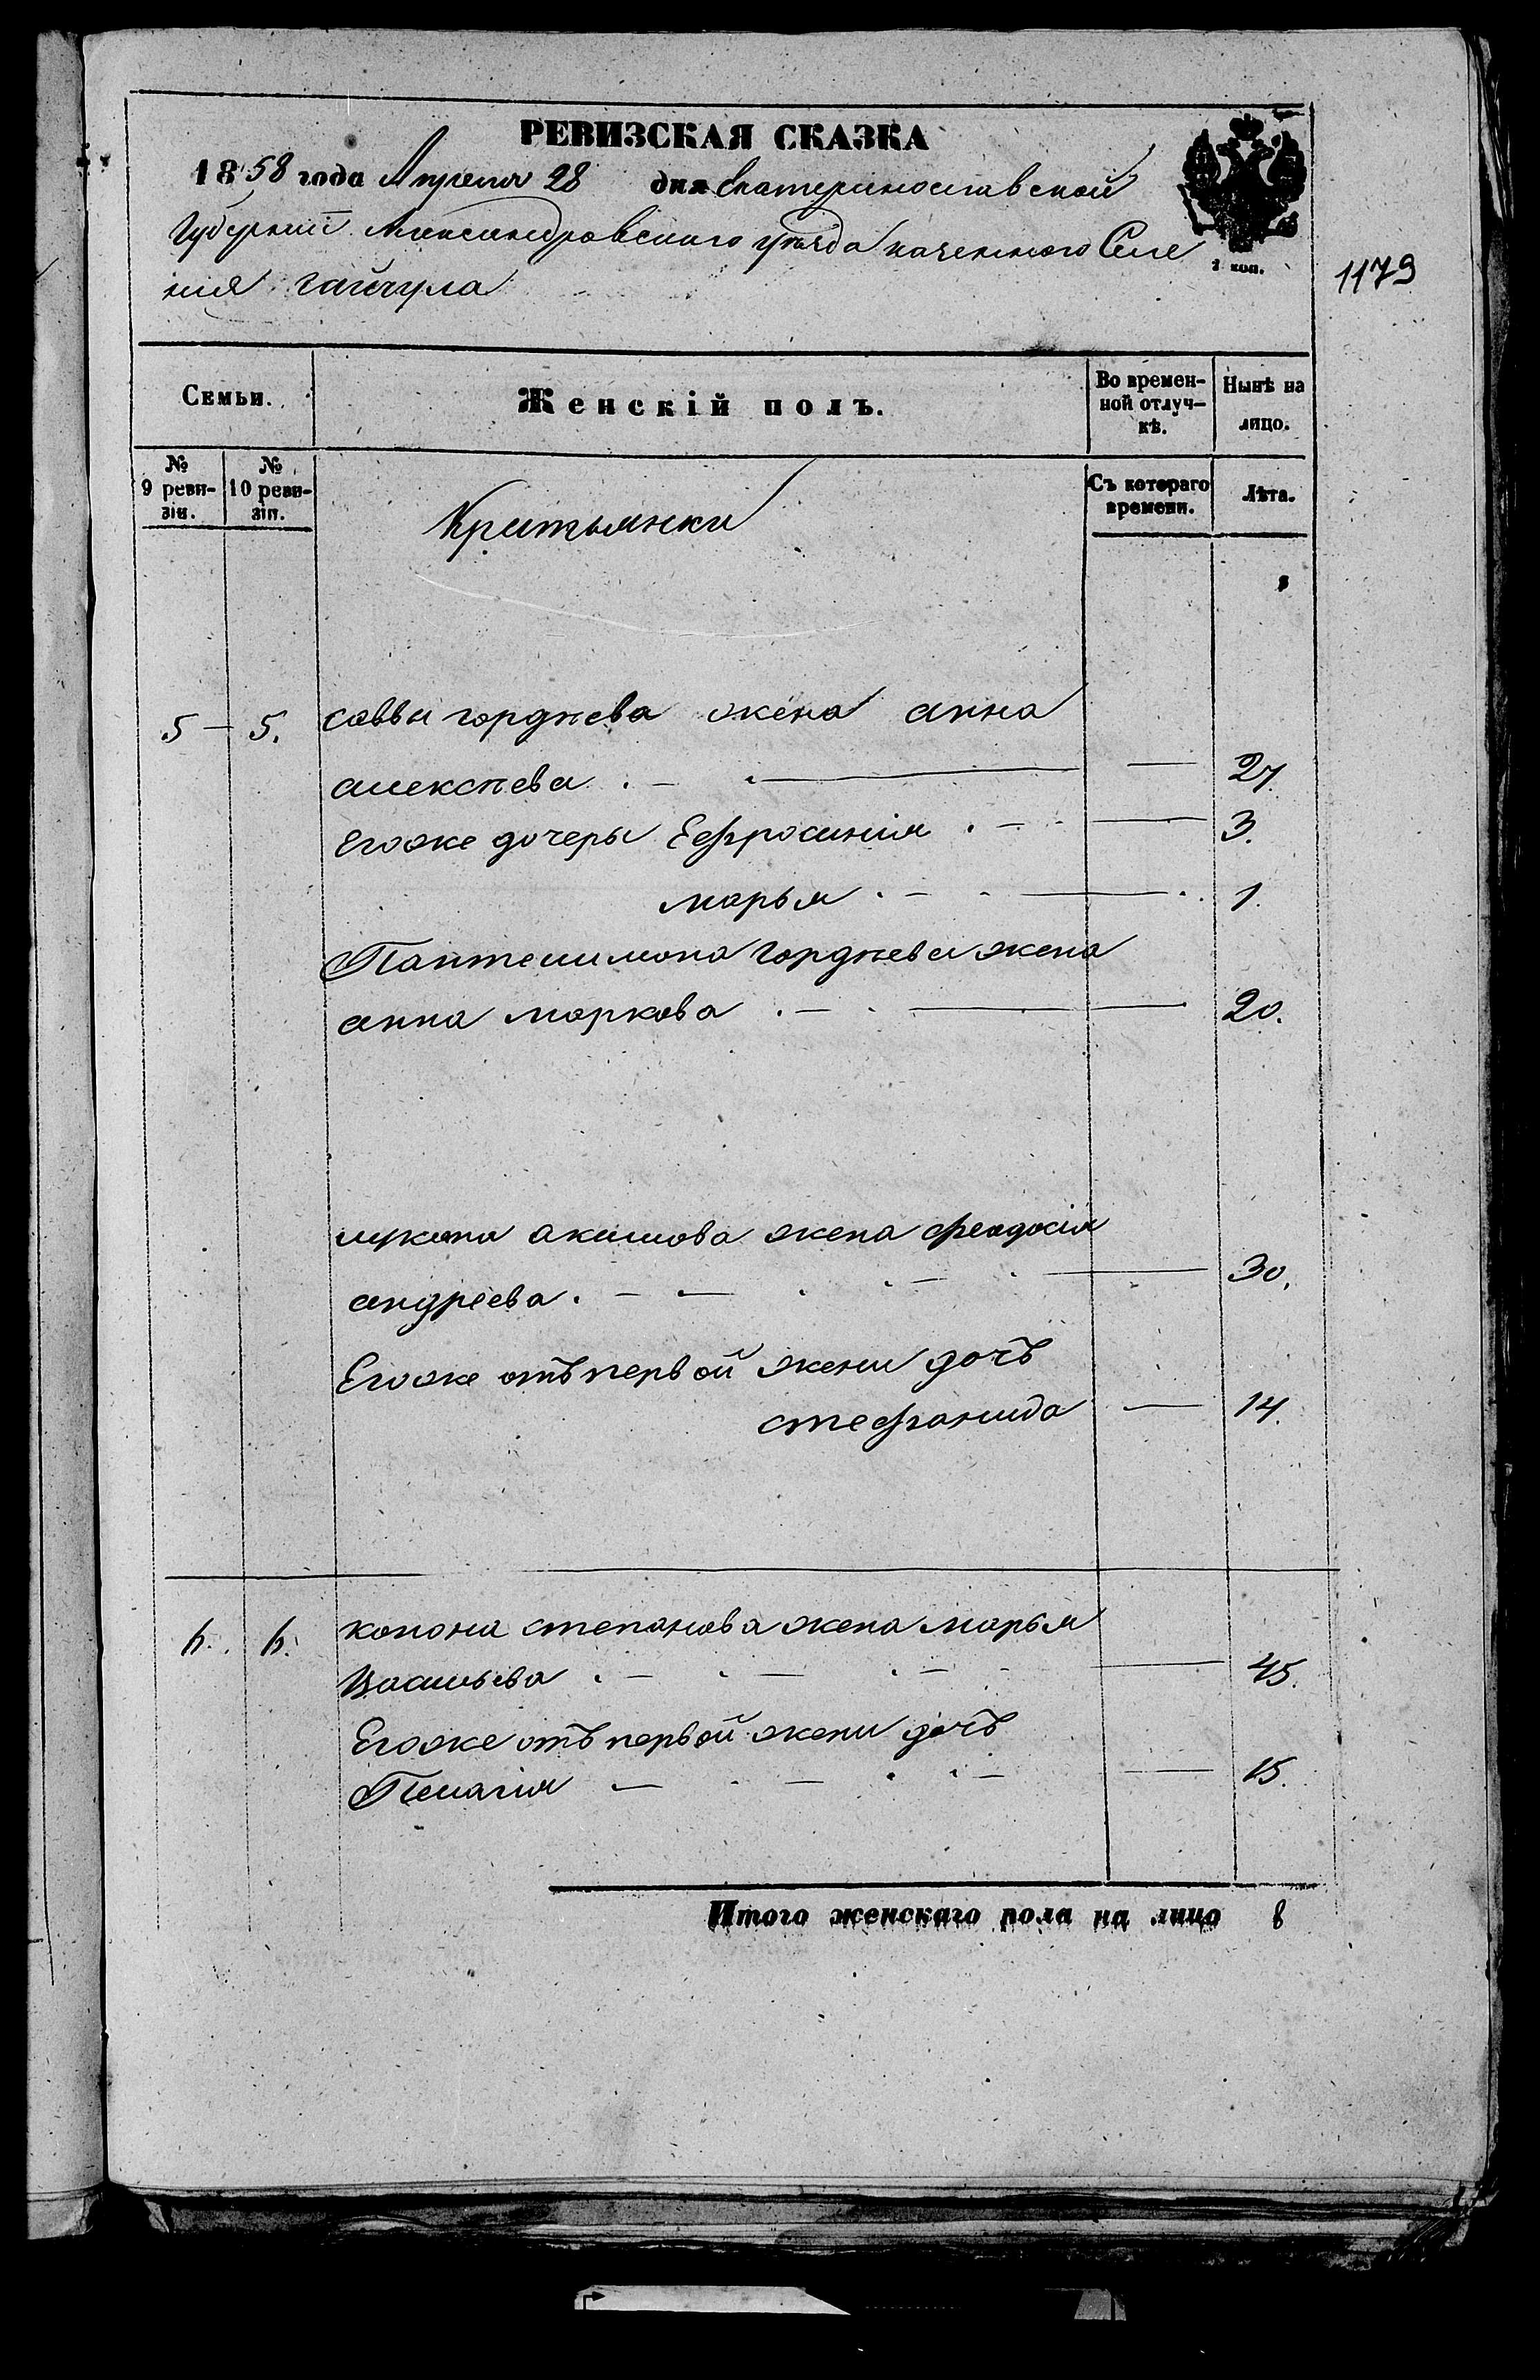 РЕВИЗСКАЯ СКАЗКА
1858 года Апреля 28 дня Екатеринославской
Губернии Александровскаго уѣзда казеннаго Селе
ния гайчула
2 коп.
1179
Семьи.
Женскій полъ.
Во времен-
ной отлуч-
кѣ.
Нынѣ на
лицо.
№
9 реви-
зіи.
№
10 реви-
зіи.
Съ котораго
времени.
Лѣта.
Критьянки
5 – 5. саввы гордѣева жена анна
алексѣева . – 27.
Егоже дочеры Ефросинія . – 3.
марья . – 1.
Пантелимона гордѣева жена
анна маркова . – 20.
лукяна акимова жена феодосія
андреева . – 30.
Егоже отъ первой жени дочъ
стефанида – 14.
6. 6. конона степанова жена марья
Васильева . – 45.
Егоже отъ первой жени дочъ
Пелагія – 15.
Итого женскаго пола на лицо 8